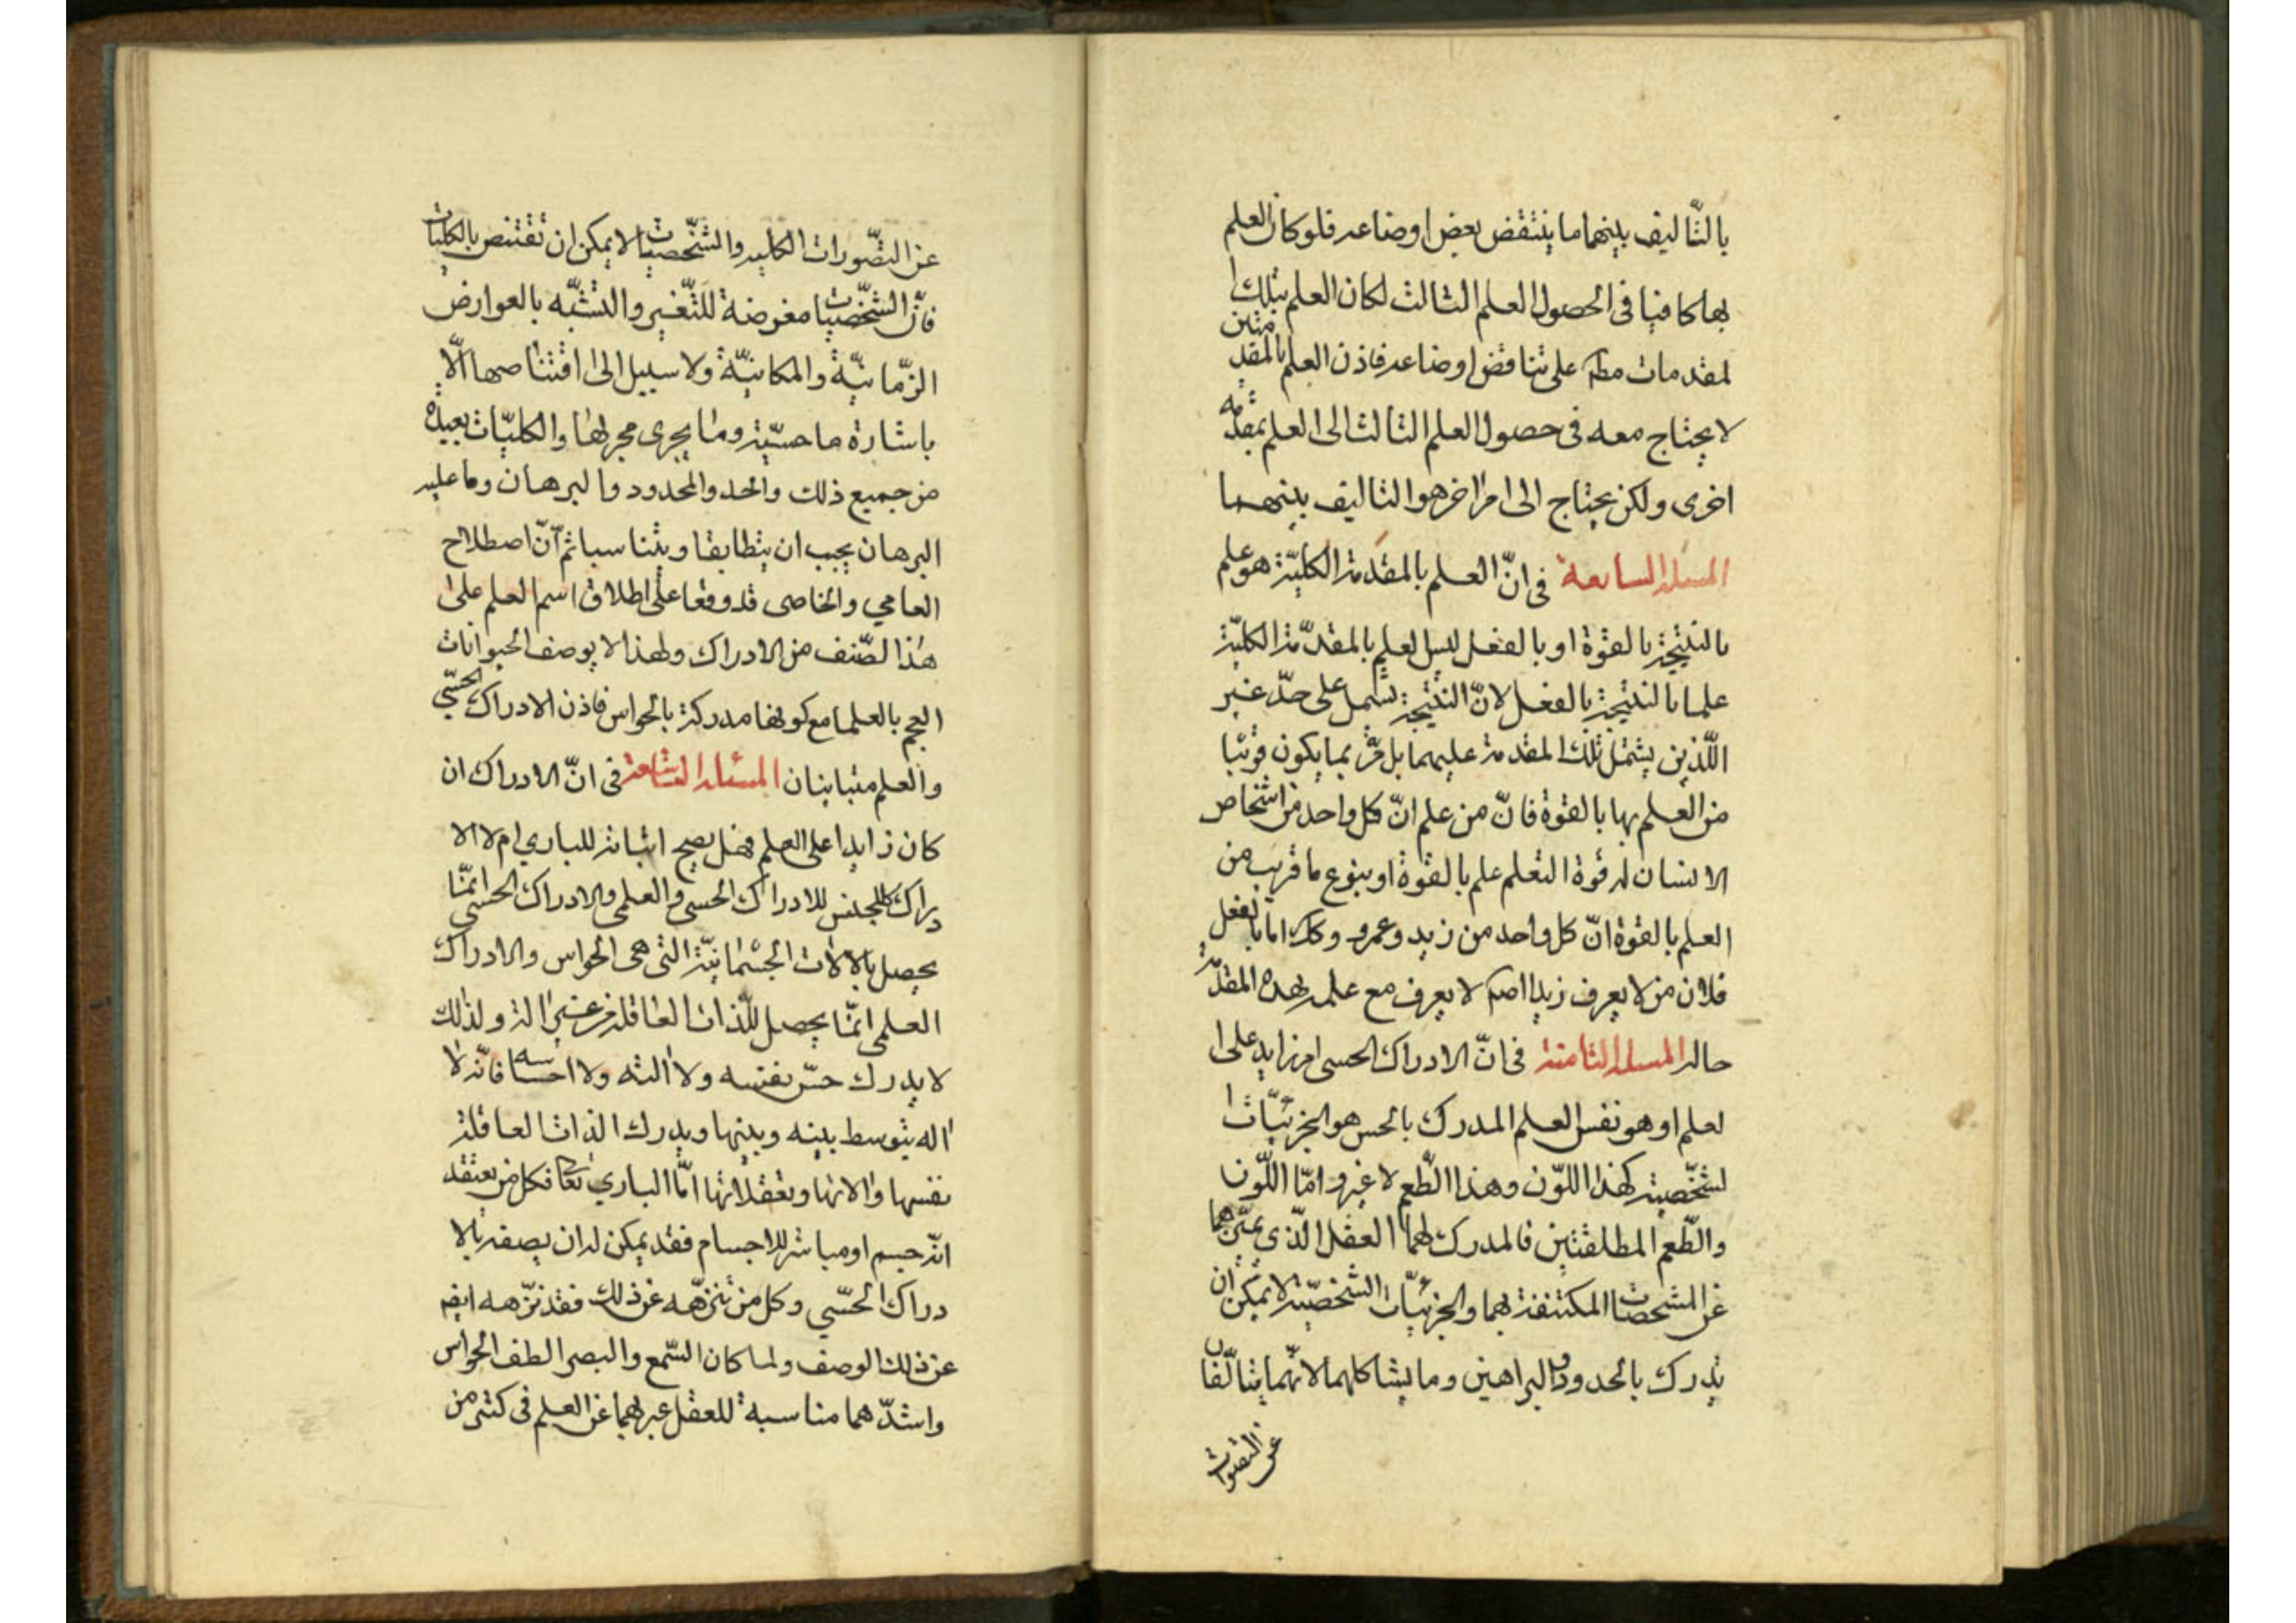 بالتّاليف بينهما ما ينتقض بعض اوضاعه فلو كان العلم
بها كافيا فى الحصول العلم الثالث لكان العلم بتلك ا
لمقدمات مطلقا على تناقض اوضاعه فاذن العلم بالمقدمتين
لا يحتاج معه فى حصول العلم الثالث الى العلم بمقدمة
اخرى ولكن يحتاج الى امر اخر هو التاليف بينهما
المسئلة السابعة فى انّ العلم بالمقدمة الكليّة هو علم
بالنتيجة بالقوة او بالفعل ليس العلم بالمقدّمة الكليّة
علما بالنتيجة بالفعل لانّ النتيجة تشمل على حدّ غير
اللّذين يشتمل تلك المقدمة عليهما بل ربما يكون قريبا
من العلم بها بالقوة فانّ من علم انّ كل واحد من اشخاص
الانسان له قوة التعلم علم بالقوة او بنوع ما قريب من
العلم بالقوة انّ كل واحد من زيد وعمرو وكك اما بالفعل
فلان من لا يعرف زيدا اصلا لا يعرف مع علمه بهذه المقدّمة
حاله المسئلة الثامنة فى انّ الادراك الحسى امر زايد على ا
لعلم او هو نفس العلم المدرك بالحس هو الجزئيّات ا
لشخّصية كهذا اللّون وهذا الطّعم لا غير وامّا اللّون
والطّعم المطلقتين فالمدرك لهما العقل الّذى يميّزهما
عن المشخصات المكتنفة بهما والجزئيّات الشخصيّة لا يمكن ان
يدرك بالحدود والبراهين وما يشاكلهما لانّهما يتالّفان
عن التصورات
عن التصّورات الكلية والشخّصيات لا يمكن ان تقتنص بالكليات
فانّ الشخّصيات معرضة للتّغير والتشبّه بالعوارض
الزّمانيّة والمكانيّة ولا سبيل الى اقتناصها الّا
باشارة ما حسيّة وما يجرى مجراها والكليّات بعيدة
من جميع ذلك والحد والمحدود والبرهان وما عليه
البرهان يجب ان يتطابقا ويتناسبا ثم انّ اصطلاح
العامي والخاصى قد وقعا على اطلاق اسم العلم على
هذا الصّنف من الادراك ولهذا لا يوصف الحيوانات
العجم بالعلم مع كونها مدركة بالحواس فاذن الادراك الحسّي
والعلم متباينان المسئلة التاسعة فى انّ الادراك ان
كان زايدا على العلم فهل يصح اثباته للبارى ام لا الا
دراك كالجنس للادراك الحسى والعلمى والادراك الحسى انمّا
يحصل بالالات الجسمانيّة التى هى الحواس والادراك
العلمى انمّا يحصل للذات العاقلة من غير الة ولذلك
لا يدرك حسّ نفسه ولا الته ولا احساسه فانّه لا
اله يتوسط بينه وبينها ويدرك الذات العاقلة
نفسها والاتها وتعقلاتها امّا البارى تعا فكل من يعتقد
انّه جسم او مباشر للاجسام فقد يمكن له ان يصفه بالا
دراك الحسّي وكل من تنزّهه عن ذلك فقد نزّهه ايضا
عن ذلك الوصف ولما كان السّمع والبصر الطف الحواس
واشدّهما مناسبة للعقل عبر بهما عن العلم فى كثير من